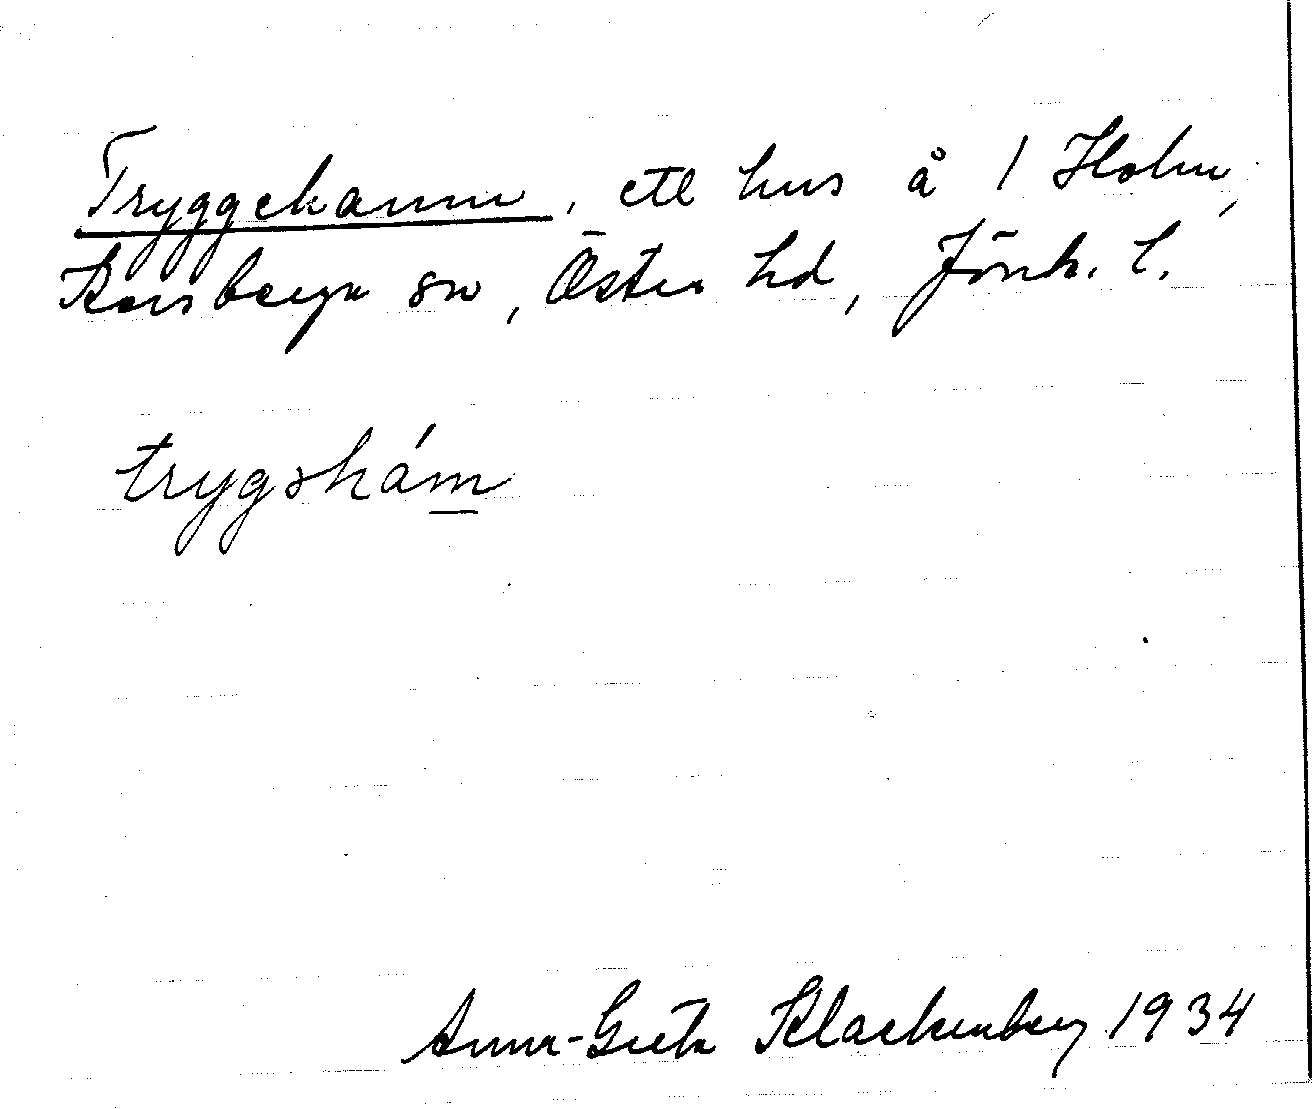 Tryggekamm, ett hus å 1 Holm,
Korsberga sn, Östra hd, Jönk. l.
trygskám
Anna-Greta Klackenberg 1934